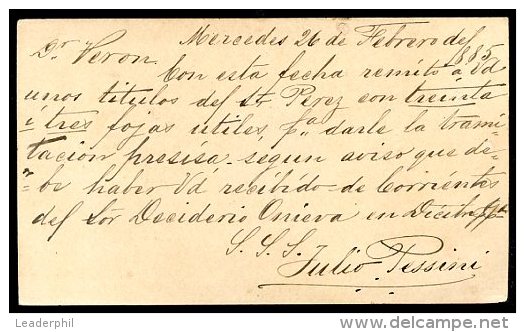 Mercedes 26 de Febrero del
885
Dr. Veron
Con esta fecha remito á Vd
unos titulos del Sr Perez con treinta
i tres fojas utiles, pa darle la trami-
tacion presisa segun aviso que de-
be haber Vd recibido de Corrientes
del Sor Deciderio Onieva en Dicibre ppdo
S. S. S.
Julio Pessini
Leaderphil
delcampe.net